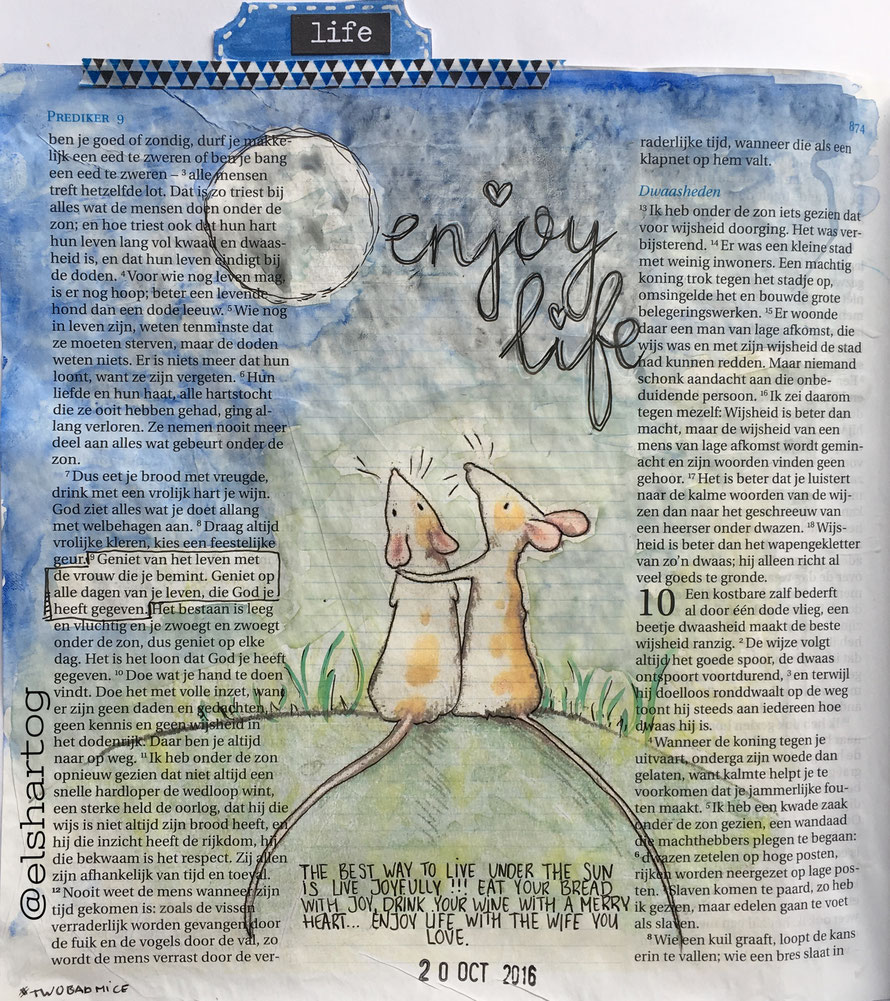 life
PREDIKER 9
874
ben je goed of zondig, durf je makke-
lijk een eed te zweren of ben je bang
een eed te zweren – 3 alle mensen
treft hetzelfde lot. Dat is zo triest bij
alles wat de mensen doen onder de
zon; en hoe triest ook dat hun hart
hun leven lang vol kwaad en dwaas-
heid is, en dat hun leven eindigt bij
de doden. 4 Voor wie nog leven mag,
is er nog hoop; beter een levende
hond dan een dode leeuw. 5 Wie nog
in leven zijn, weten tenminste dat
ze moeten sterven, maar de doden
weten niets. Er is niets meer dat hun
loont, want ze zijn vergeten. 6 Hun
liefde en hun haat, alle hartstocht
die ze ooit hebben gehad, ging al-
lang verloren. Ze nemen nooit meer
deel aan alles wat gebeurt onder de
zon.
7 Dus eet je brood met vreugde,
drink met een vrolijk hart je wijn.
God ziet alles wat je doet allang
met welbehagen aan. 8 Draag altijd
vrolijke kleren, kies een feestelijke
geur. 9 Geniet van het leven met
de vrouw die je bemint. Geniet op
alle dagen van je leven, die God je
heeft gegeven. Het bestaan is leeg
en vluchtig en je zwoegt en zwoegt
onder de zon, dus geniet op elke
dag. Het is het loon dat God je heeft
gegeven. 10 Doe wat je hand te doen
vindt. Doe het met volle inzet, want
er zijn geen daden en gedachten,
geen kennis en geen wijsheid in
het dodenrijk. Daar ben je altijd
naar op weg. 11 Ik heb onder de zon
opnieuw gezien dat niet altijd een
snelle hardloper de wedloop wint,
een sterke held de oorlog, dat hij die
wijs is niet altijd zijn brood heeft, en
hij die inzicht heeft de rijkdom, hij
die bekwaam is het respect. Zij allen
zijn afhankelijk van tijd en toeval.
12 Nooit weet de mens wanneer zijn
tijd gekomen is: zoals de vissen
verraderlijk worden gevangen door
de fuik en de vogels door de val, zo
wordt de mens verrast door de ver-
enjoy
life
THE BEST WAY TO LIVE UNDER THE SUN
IS LIVE JOYFULLY !!! EAT YOUR BREAD
WITH JOY, DRINK YOUR WINE WITH A MERRY
HEART... ENJOY LIFE WITH THE WIFE YOU
LOVE.
20 OCT 2016
raderlijke tijd, wanneer die als een
klapnet op hem valt.
Dwaasheden
13 Ik heb onder de zon iets gezien dat
voor wijsheid doorging. Het was ver-
bijsterend. 14 Er was een kleine stad
met weinig inwoners. Een machtig
koning trok tegen het stadje op,
omsingelde het en bouwde grote
belegeringswerken. 15 Er woonde
daar een man van lage afkomst, die
wijs was en met zijn wijsheid de stad
had kunnen redden. Maar niemand
schonk aandacht aan die onbe-
duidende persoon. 16 Ik zei daarom
tegen mezelf: Wijsheid is beter dan
macht, maar de wijsheid van een
mens van lage afkomst wordt gemin-
acht en zijn woorden vinden geen
gehoor. 17 Het is beter dat je luistert
naar de kalme woorden van de wij-
zen dan naar het geschreeuw van
een heerser onder dwazen. 18 Wijs-
heid is beter dan het wapengekletter
van zo'n dwaas; hij alleen richt al
veel goeds te gronde.
10 Een kostbare zalf bederft
al door één dode vlieg, een
beetje dwaasheid maakt de beste
wijsheid ranzig. 2 De wijze volgt
altijd het goede spoor, de dwaas
ontspoort voortdurend, 3 en terwijl
hij doelloos ronddwaalt op de weg
toont hij steeds aan iedereen hoe
dwaas hij is.
4 Wanneer de koning tegen je
uitvaart, onderga zijn woede dan
gelaten, want kalmte helpt je te
voorkomen dat je jammerlijke fou-
ten maakt. 5 Ik heb een kwade zaak
onder de zon gezien, een wandaad
die machthebbers plegen te begaan:
6 dwazen zetelen op hoge posten,
rijken worden neergezet op lage pos-
ten. 7 Slaven komen te paard, zo heb
ik gezien, maar edelen gaan te voet
als slaven.
8 Wie een kuil graaft, loopt de kans
erin te vallen; wie een bres slaat in
@elshartog
#TWOBADMICE